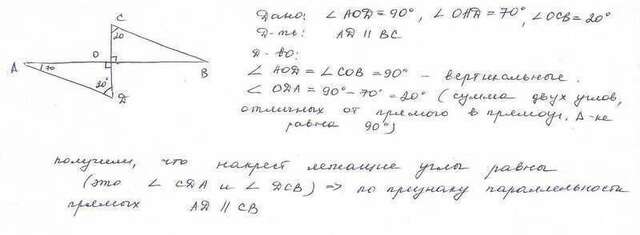 C
20
O
A
70
B
20°
Д
Дано: ∠AOД = 90°, ∠OAД = 70°, ∠OCB = 20°
Д-ть: AД || BC.
Д-во:
∠AOД = ∠COB = 90° – вертикальные.
∠OДA = 90° – 70° = 20° (сумма двух углов,
отличных от прямого в прямоуг. Δ-ке
равна 90°)
получили, что накрест лежащие углы равны
(это ∠CДA и ∠ДCB) ⇒ по признаку параллельности
прямых AД || CB